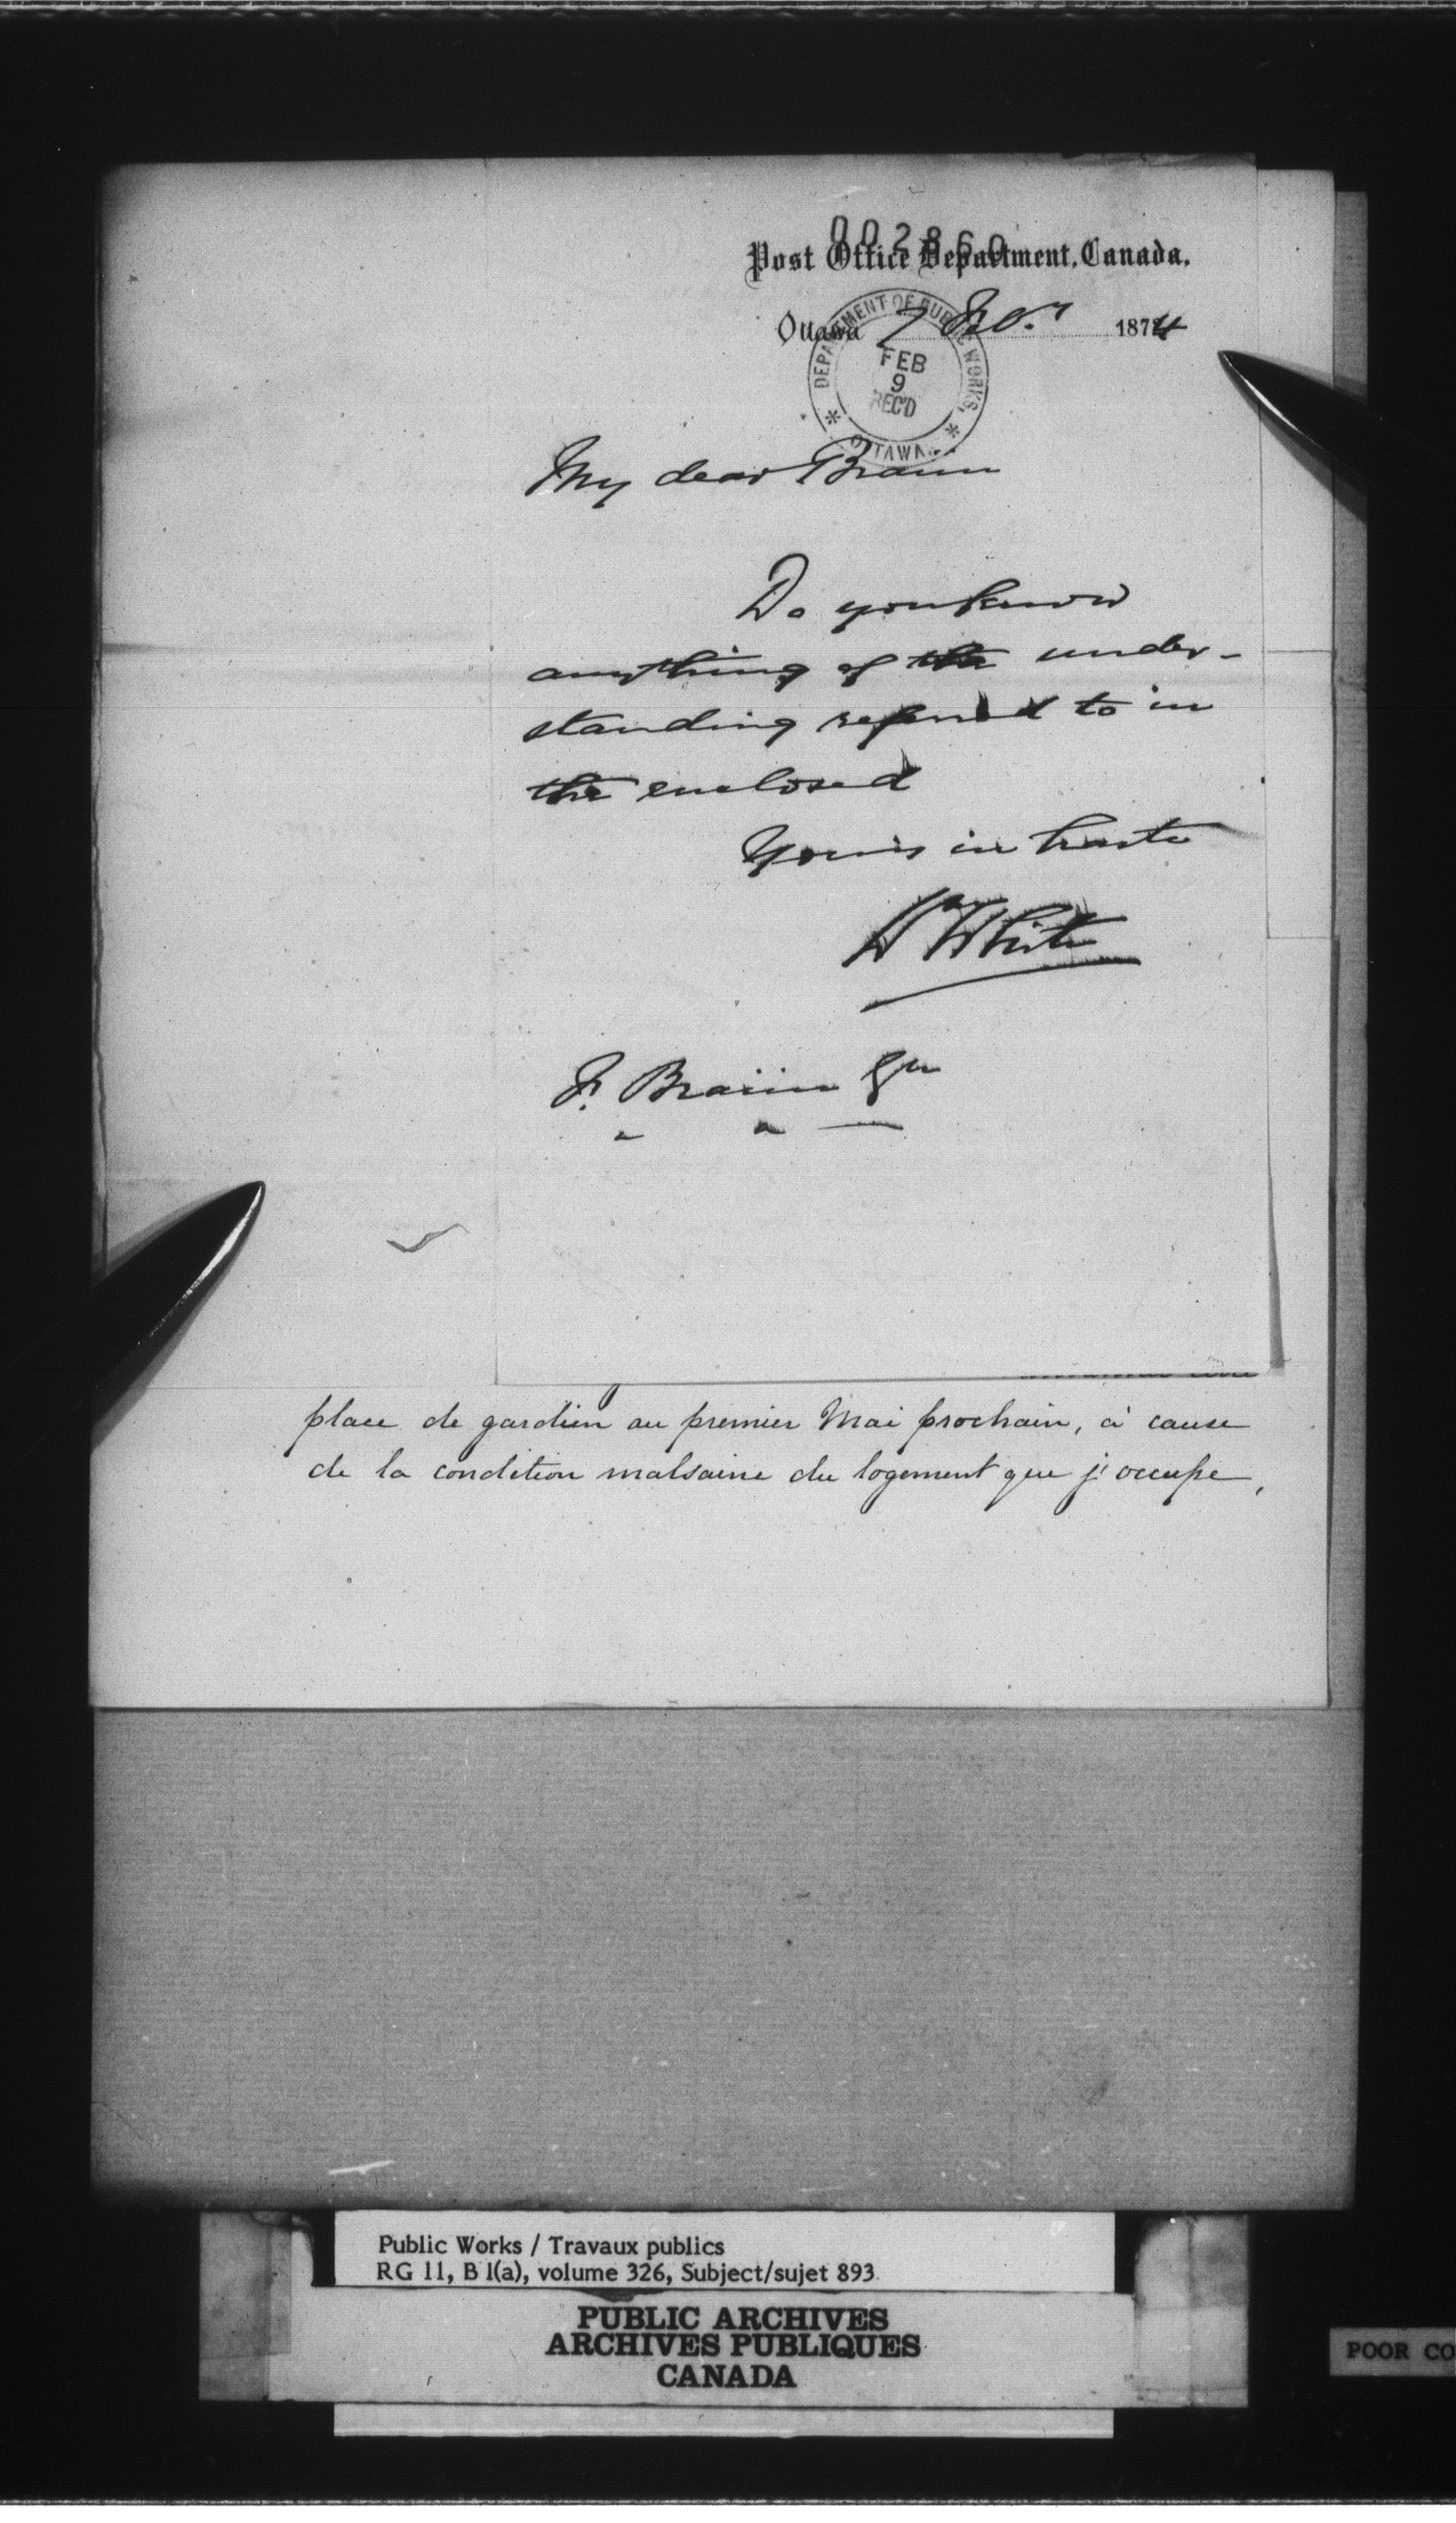 002860
Post Office Department, Canada.
Ottawa 7 Feby 1874
DEPARTMENT OF PUBLIC WORKS, OTTAWA
FEB
9
REC'D
My dear Braun
Do you know
anything of the under-
standing referred to in
the enclosed
Yours in haste
W White
F. Braun Esq
place de gardien au premier Mai prochain, à cause
de la condition malsaine du logement que j'occupe,
Public Works / Travaux publics
RG 11, B 1(a), volume 326, Subject/sujet 893
PUBLIC ARCHIVES
ARCHIVES PUBLIQUES
CANADA
POOR CO